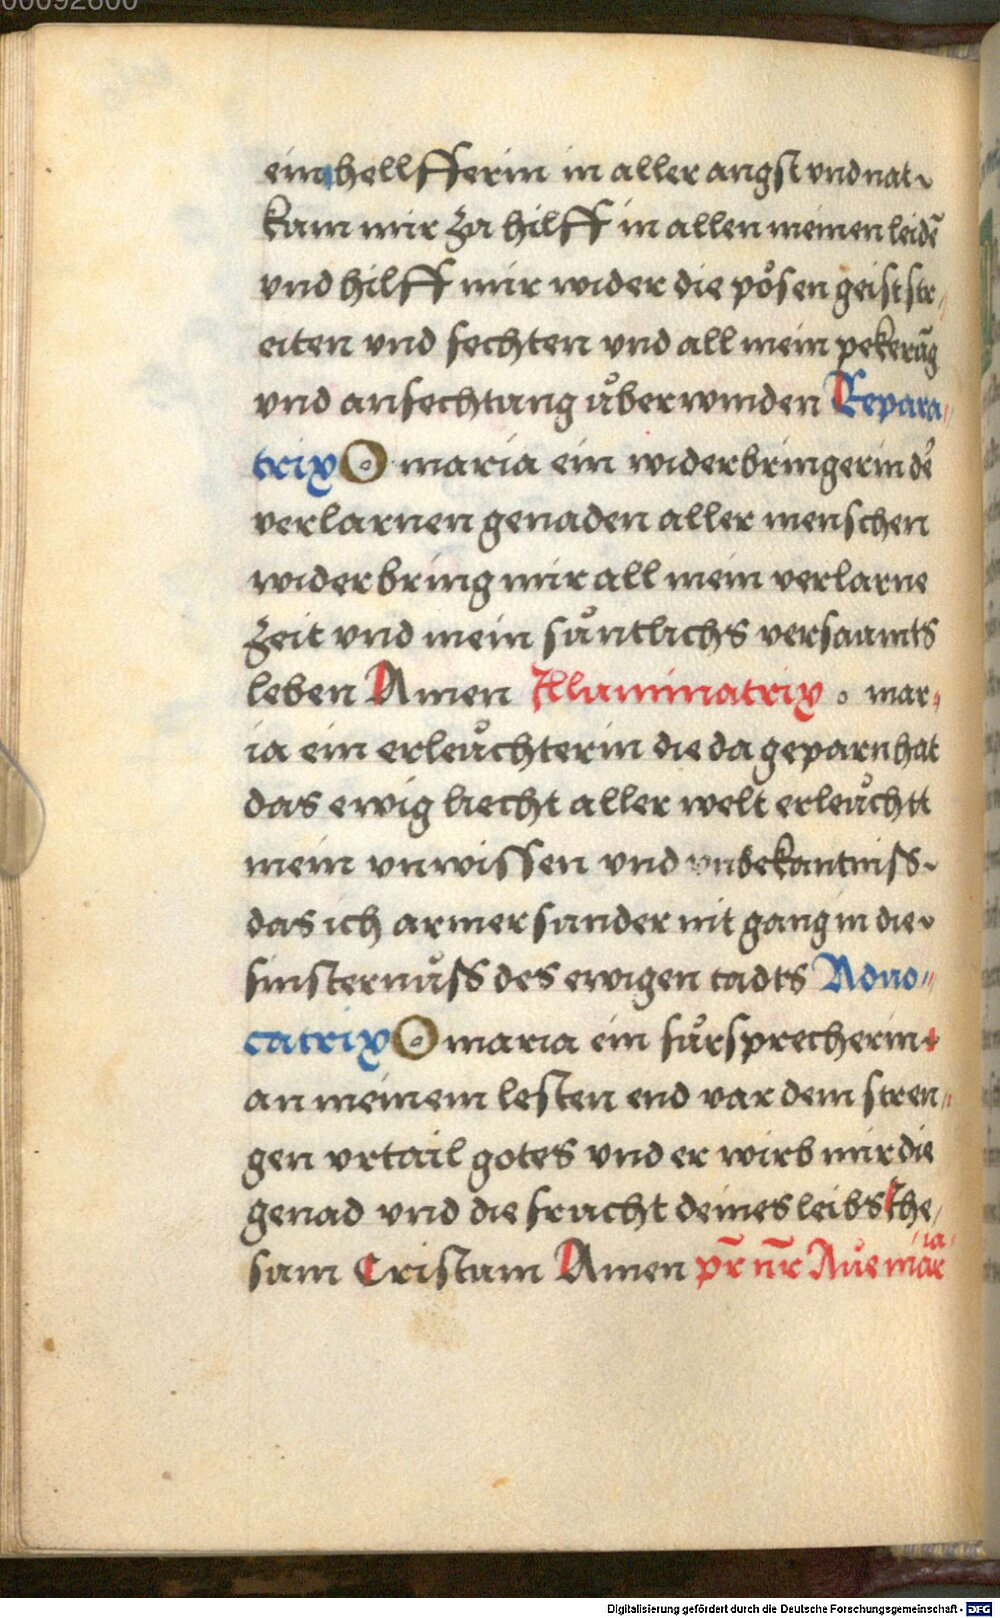 00092600
ein hellfferin in aller angst vnd nat
kam mir zu hilff in allen meinen leidē
vnd hilff mir wider die pösen geist str
eiten vnd fechten vnd all mein pekerūg
vnd anfechtung ůberwinden Repara
trix O maria ein widerbringerin dē
verlarnen genaden aller menschen
widerbring mir all mein verlarne
zeit vnd mein sůntlichs versaumts
leben Amen Illuminatrix o mar
ia ein erleůchterin die da geparn hat
das ewig liecht aller welt erleůchtt
mein vnwissen vnd vnbekantniss
das ich armer sunder nit gang in die
finsternůss des ewigen tadts Aduo
catrix O maria ein fůrsprecherin
an meinem lesten end var dem stren
gen vrtail gotes vnd er wirb mir die
genad vnd die frucht deines leibs Ihe
sum Cristum Amen pr̄ nr̄ Aue mar
ia
Digitalisierung gefördert durch die Deutsche Forschungsgemeinschaft - DFG